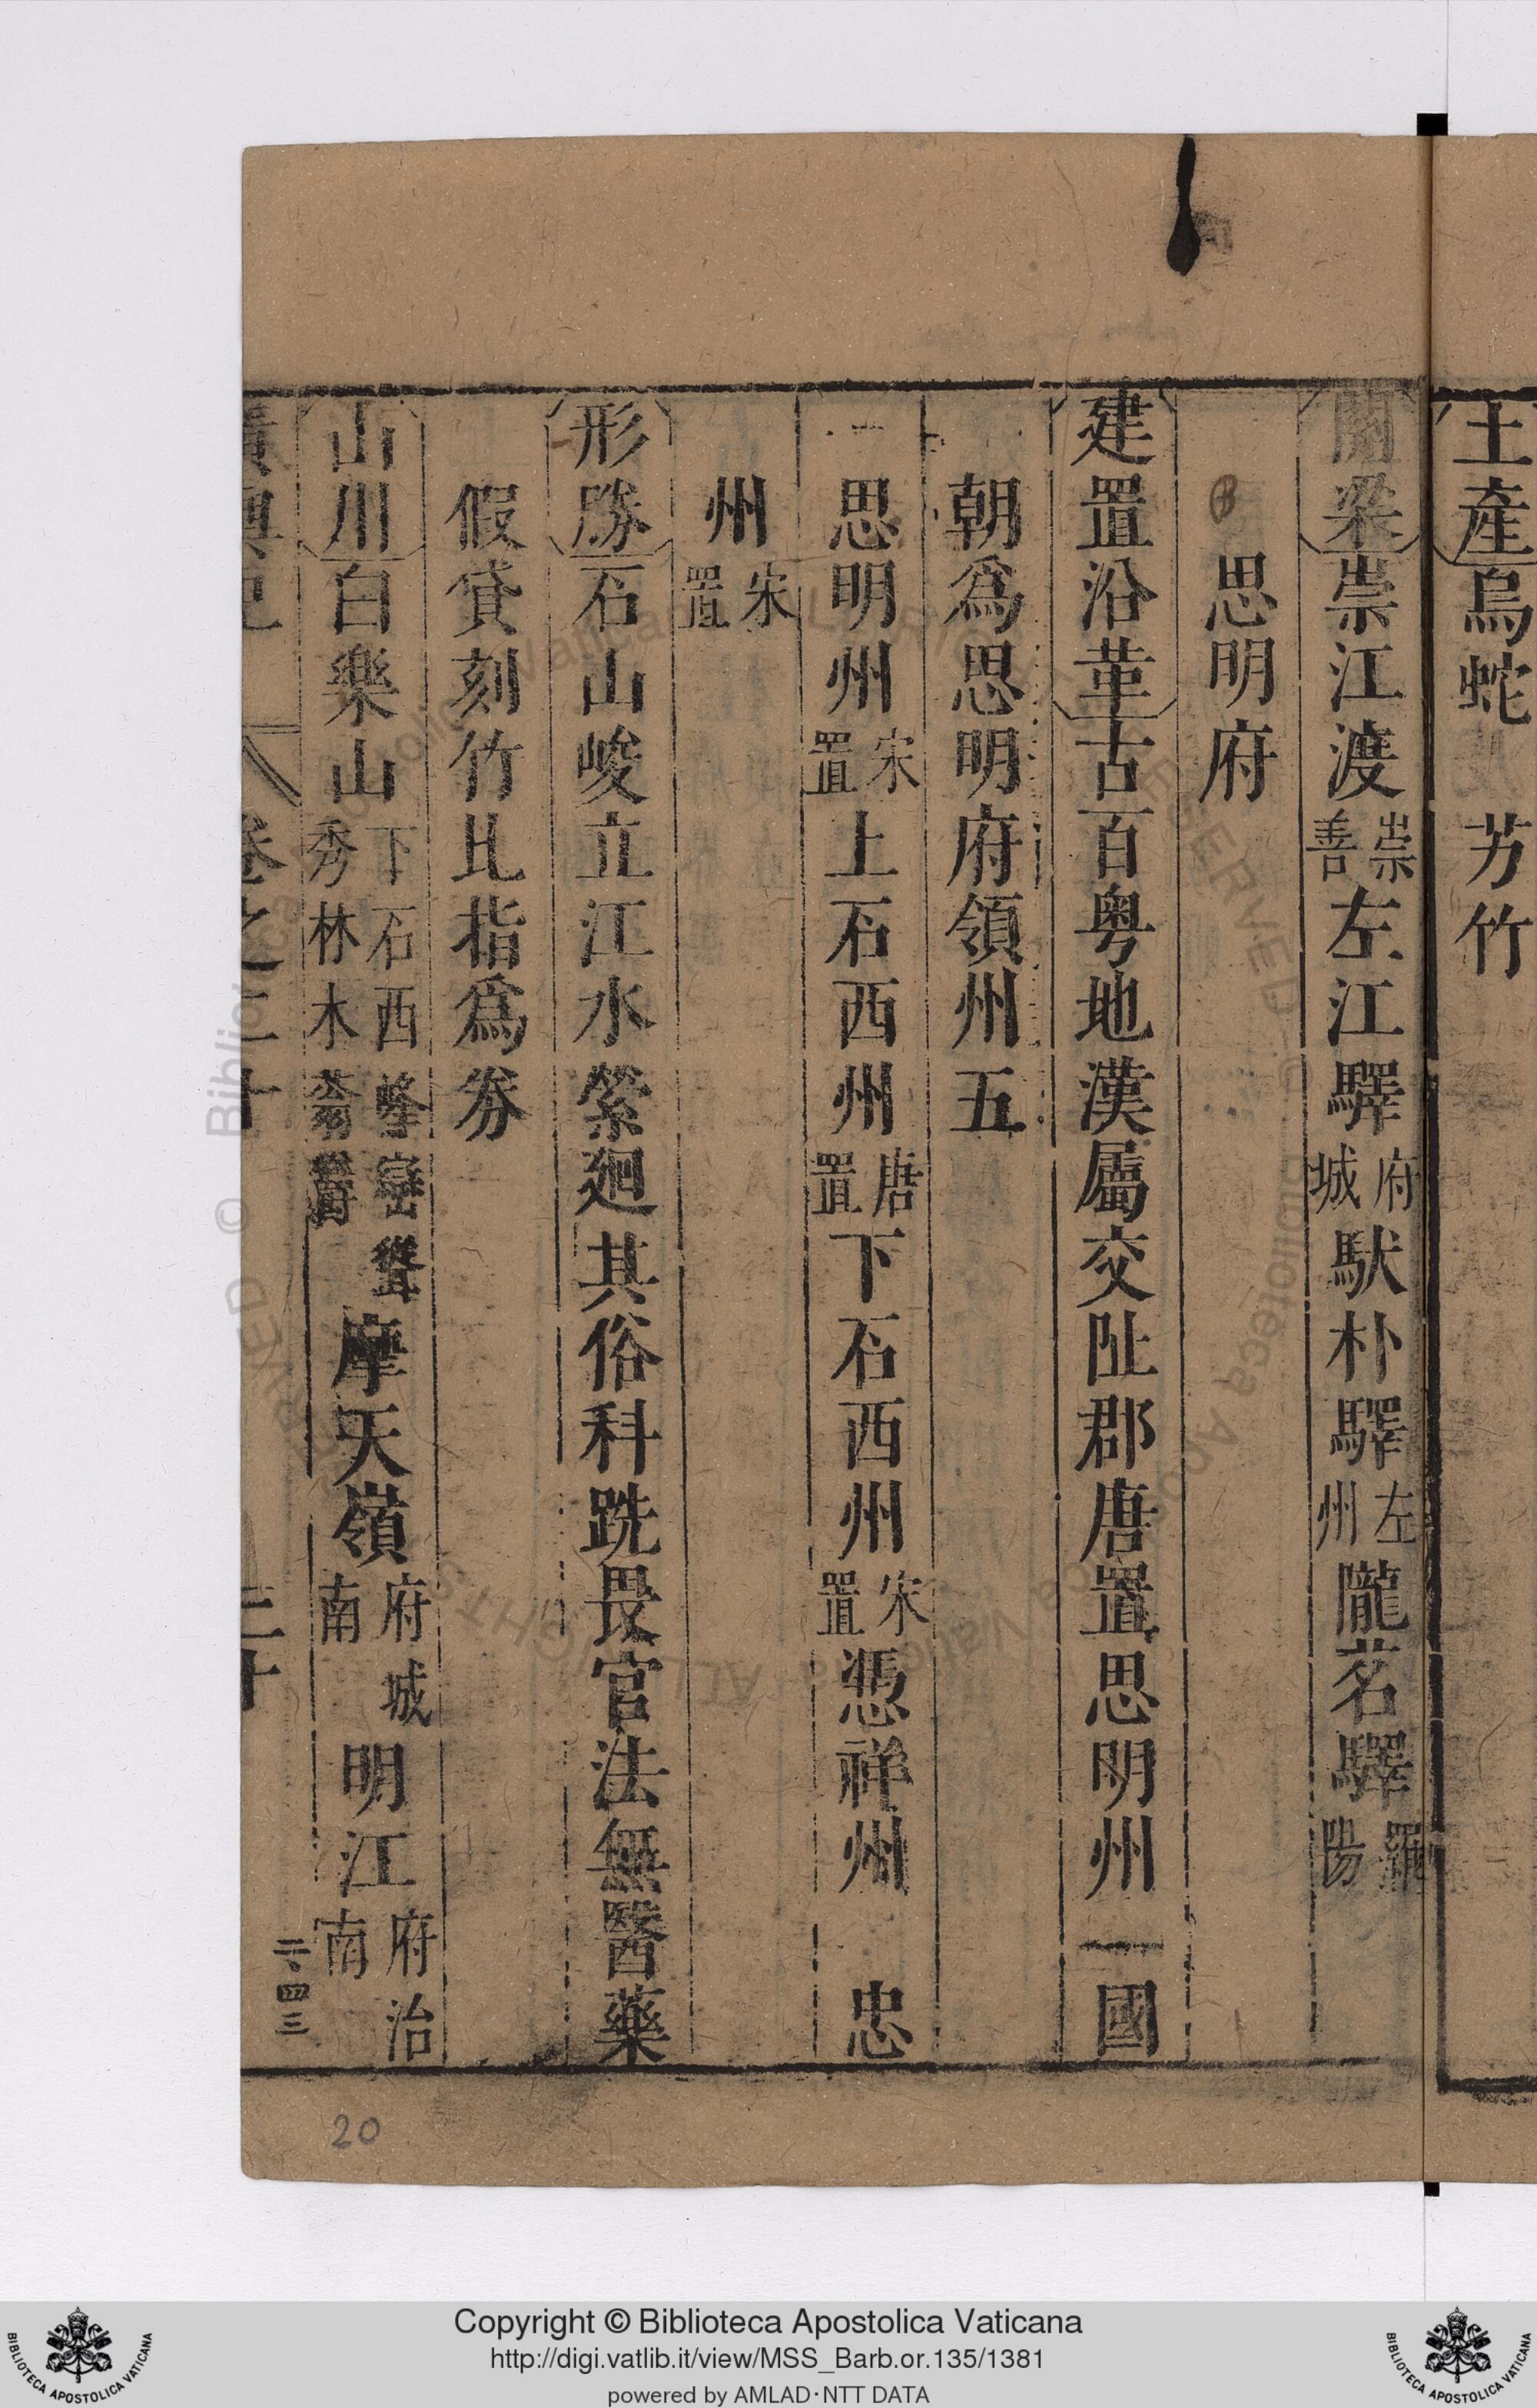 土產烏蛇 艻竹
關梁崇江渡崇善左江驛府城馱朴驛左州隴茗驛羅陽
思明府
建置沿革古百粵地漢屬交阯郡唐置思明州 國
朝爲思明府領州五
思明州宋置上石西州唐置下石西州宋置憑祥州 忠
州宋置
形勝石山峻立江水縈廻其俗科跣畏官法無醫藥
假貸刻竹比指爲劵
山川白樂山下石西峰巒聳秀林木蓊鬱摩天嶺府城南明江府治南
卷之二十 二十
二〇四三
20
Copyright © Biblioteca Apostolica Vaticana
http://digi.vatlib.it/view/MSS_Barb.or.135/1381
powered by AMLAD·NTT DATA
BIBLIOTECA APOSTOLICA VATICANA
BIBLIOTECA APOSTOLICA VATICANA